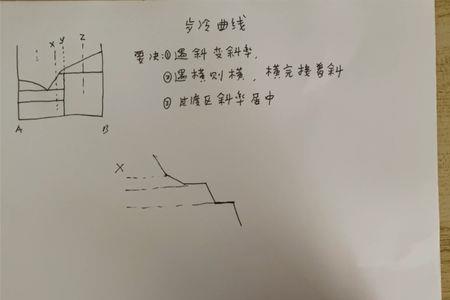 步冷曲线
要决:①遇斜变斜率,
②遇横则横,横完接着斜
③过渡区斜率居中
x y z
A B
X